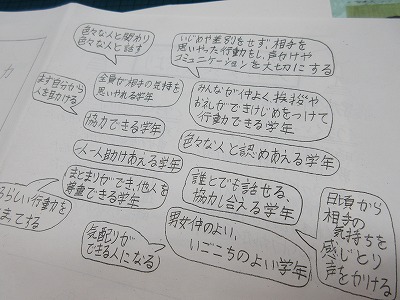 色々な人と関わり
色々な人と話す
いじめや差別をせず、相手を
思いやった行動をし、声かけや
コミュニケーションを大切にする
まず自分から
人を助ける
全員が相手の気持を
思いやれる学年
みんなが仲よく、挨拶や
お礼ができけじめをつけて
行動できる学年
協力できる学年
色々な人と認めあえる学年
一人一人助けあえる学年
まとまりができ、他人を
尊重できる学年
誰とでも話せる、
協力し合える学年
日頃から
相手の
気持ちを
感じとり
声をかける
らしい行動を
男女仲のよい、
いごこちのよい学年
気配りが
できる人になる
力